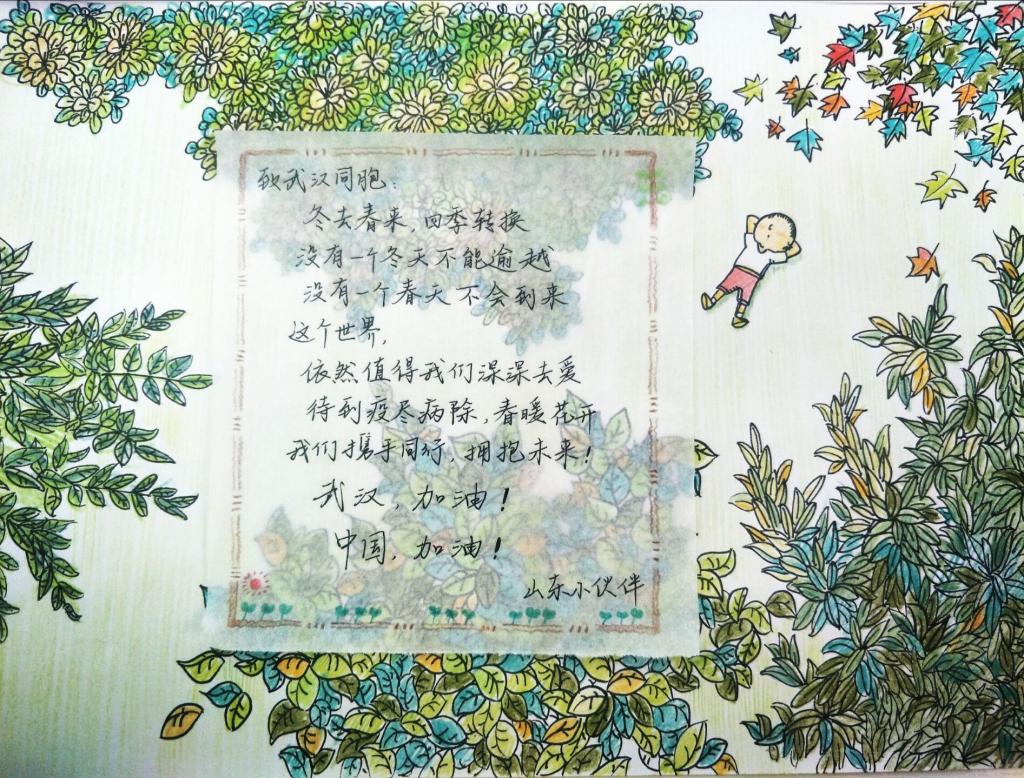 致武汉同胞：
冬去春来，四季转换
没有一个冬天不能逾越
没有一个春天不会到来
这个世界，
依然值得我们深深去爱
待到疫尽病除，春暖花开
我们携手同行，拥抱未来！
武汉，加油！
中国，加油！
山东小伙伴